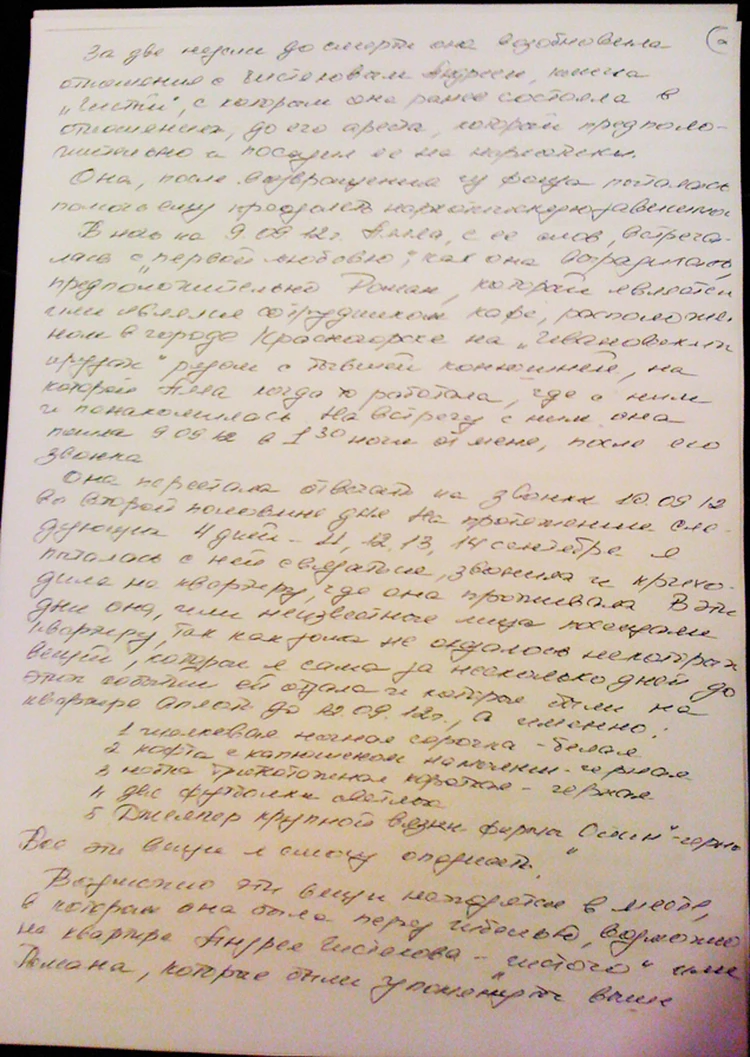 За две недели до смерти она возобновила
отношения с Чистяковым Андреем, кличка
„Чистый", с которым она ранее состояла в
отношениях, до его ареста, который предполо-
жительно и посадил ее на наркотики.
Она, после возвращения из пыталась
помочь ему преодолеть наркотическую зависимость
В ночь на 9.09.12г. Алла, с ее слов, встреча-
лась с "первой любовью", как она выразилась,
предположительно Роман, который является
или являлся сотрудником кафе, расположен
ном в городе Красногорске на „Ивановских
прудах" рядом с бывшей конюшней, на
которой Алла когда то работала, где с ним
и познакомилась На встречу с ним она
пошла 9 09 12 в 1 30 ночи от меня, после его
звонка
Она перестала отвечать на звонки 10.09 12
во второй половине дня На протяжение сле-
дующих 4 дней - 11, 12, 13, 14 сентября я
пыталась с ней связаться, звонила и прихо-
дила на квартиру, где она проживала В эти
дни она, или неизвестные лица посещали
квартиру, так как дома не оказалось некоторых
вещей, которые я сама за несколько дней до
этих событий ей отдала и которые были на
квартире вплоть до 12.09.12г., а именно:
1 шелковая ночная сорочка - белая
2 кофта с капюшоном на молнии - черная
3 трикотажная короткая - черная
4 две футболки светлых
5 Джемпер крупной вязки фирмы
Все эти вещи я смогу опознать.
Возможно эти вещи находятся в месте,
в котором она была перед гибелью, возможно
на квартире Андрея Чистякова - „Чистого" или
Романа, которые были упомянуты выше